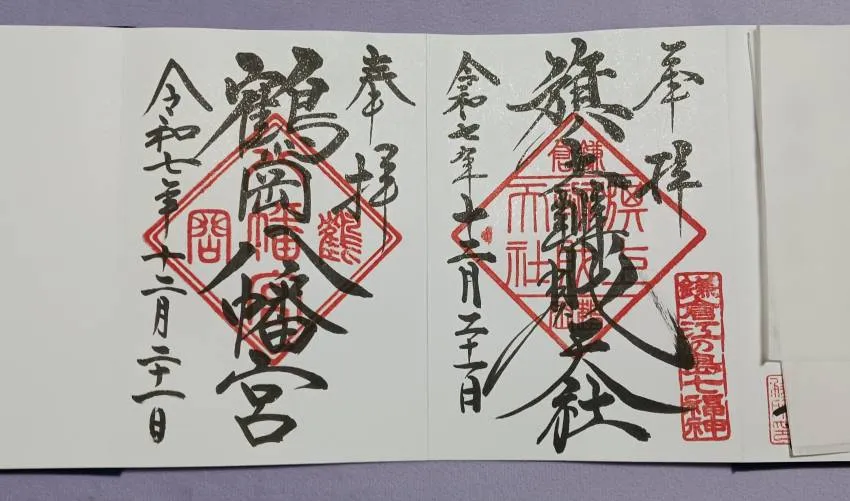 奉拝
鎌倉江の島七福神
旗上辨財天社
令和七年十二月二十一日
奉拝
鶴岡八幡宮
令和七年十二月二十一日